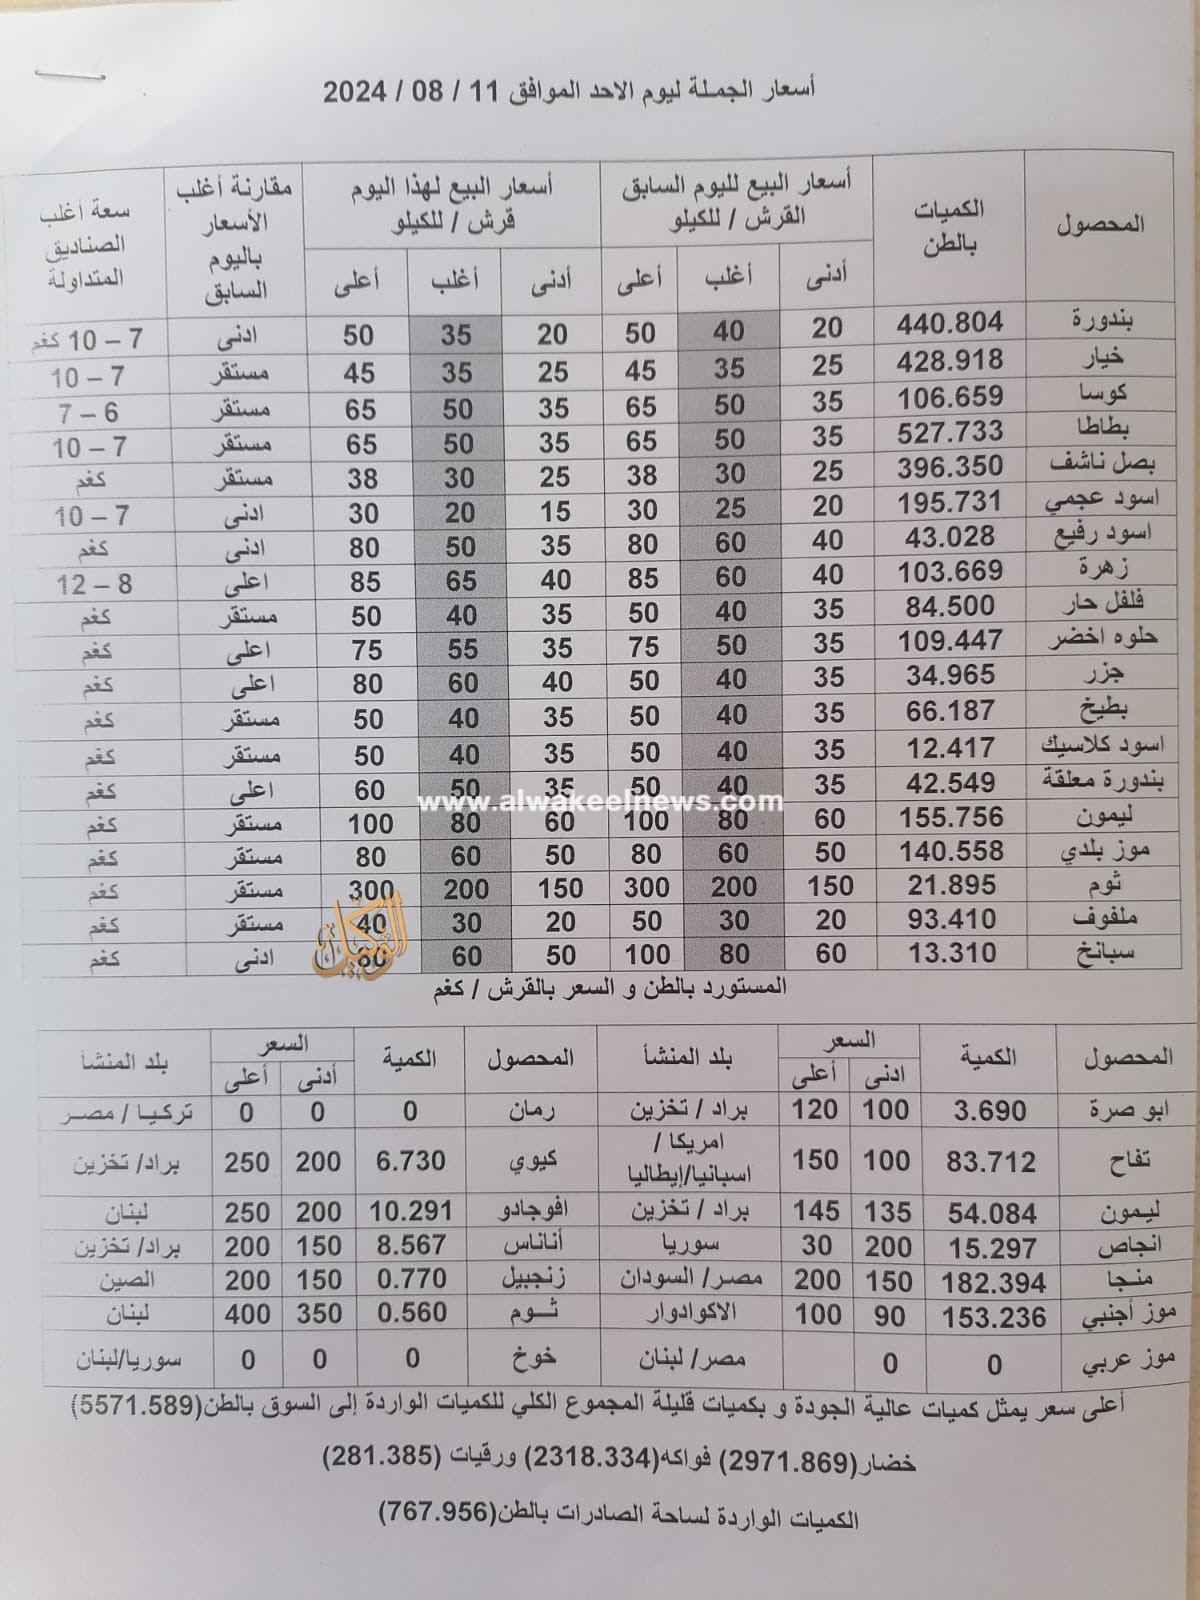 أسعار الجملة ليوم الاحد الموافق 11 / 08 / 2024
المحصول الكميات بالطن أسعار البيع لليوم السابق القرش / للكيلو أسعار البيع لهذا اليوم قرش / للكيلو مقارنة أغلب الأسعار باليوم السابق سعة أغلب الصناديق المتداولة
أدنى أغلب أعلى أدنى أغلب أعلى
بندورة 440.804 20 40 50 20 35 50 ادنى 7 – 10 كغم
خيار 428.918 25 35 45 25 35 45 مستقر 7 – 10
كوسا 106.659 35 50 65 35 50 65 مستقر 6 – 7
بطاطا 527.733 35 50 65 35 50 65 مستقر 7 – 10
بصل ناشف 396.350 25 30 38 25 30 38 مستقر كغم
اسود عجمي 195.731 20 25 30 15 20 30 ادنى 7 – 10
اسود رفيع 43.028 40 60 80 35 50 80 ادنى كغم
زهرة 103.669 40 60 85 40 65 85 اعلى 8 – 12
فلفل حار 84.500 35 40 50 35 40 50 مستقر كغم
حلوه اخضر 109.447 35 50 75 35 55 75 اعلى كغم
جزر 34.965 35 40 50 40 60 80 اعلى كغم
بطيخ 66.187 35 40 50 35 40 50 مستقر كغم
اسود كلاسيك 12.417 35 40 50 35 40 50 مستقر كغم
بندورة معلقة 42.549 35 40 50 35 50 60 اعلى كغم
www.alwakeelnews.com
ليمون 155.756 60 80 100 60 80 100 مستقر كغم
موز بلدي 140.558 50 60 80 50 60 80 مستقر كغم
ثوم 21.895 150 200 300 150 200 300 مستقر كغم
ملفوف 93.410 20 30 50 20 30 40 مستقر كغم
الوكيل
سبانخ 13.310 60 80 100 50 60 ادنى كغم
المستورد بالطن و السعر بالقرش / كغم
المحصول الكمية السعر بلد المنشأ المحصول الكمية السعر بلد المنشأ
ادنى أعلى أدنى أعلى
ابو صرة 3.690 100 120 براد / تخزين رمان 0 0 0 تركيا / مصر
تفاح 83.712 100 150 امريكا / اسبانيا/إيطاليا كيوي 6.730 200 250 براد/ تخزين
ليمون 54.084 135 145 براد / تخزين افوجادو 10.291 200 250 لبنان
انجاص 15.297 200 30 سوريا أناناس 8.567 150 200 براد/ تخزين
منجا 182.394 150 200 مصر/ السودان زنجبيل 0.770 150 200 الصين
موز أجنبي 153.236 90 100 الاكوادوار ثوم 0.560 350 400 لبنان
موز عربي 0 0 مصر/ لبنان خوخ 0 0 0 سوريا/لبنان
أعلى سعر يمثل كميات عالية الجودة و بكميات قليلة المجموع الكلي للكميات الواردة إلى السوق بالطن(5571.589)
خضار(2971.869) فواكه(2318.334) ورقيات (281.385)
الكميات الواردة لساحة الصادرات بالطن(767.956)